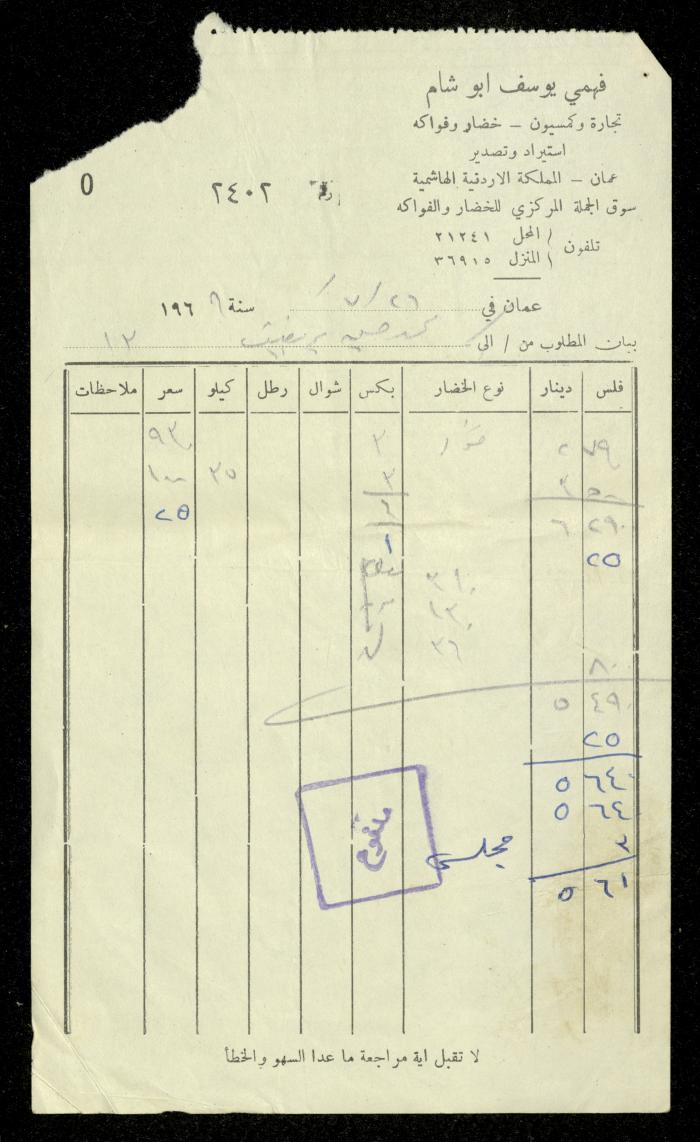 فهمي يوسف ابو شام
تجارة وكمسيون – خضار وفواكه
استيراد وتصدير
عمان – المملكة الاردنية الهاشمية
سوق الجملة المركزي للخضار والفواكه
تلفون / المحل ٢١٢٤١
\ المنزل ٣٦٩١٥
رقم ٢٤٠٢
0
عمان في ٢٦/٧/ سنة ١٩٦
بيان المطلوب من / الى ١٢
فلس دينار نوع الخضار بكس شوال رطل كيلو سعر ملاحظات
٢ ٣ ٩٣٠
٣ ٣٥ ١٠٠
٢٩٠ ٦ ٢٥
٢٥ ١
٣١٠
١٣٠
٣٦
٨٠٠
٤٩٠ ٥
٢٥
٦٤٠ ٥
٦٤٠ ٥
٣
٦١ ٥
مدفوع
لا تقبل اية مراجعة ما عدا السهو والخطأ